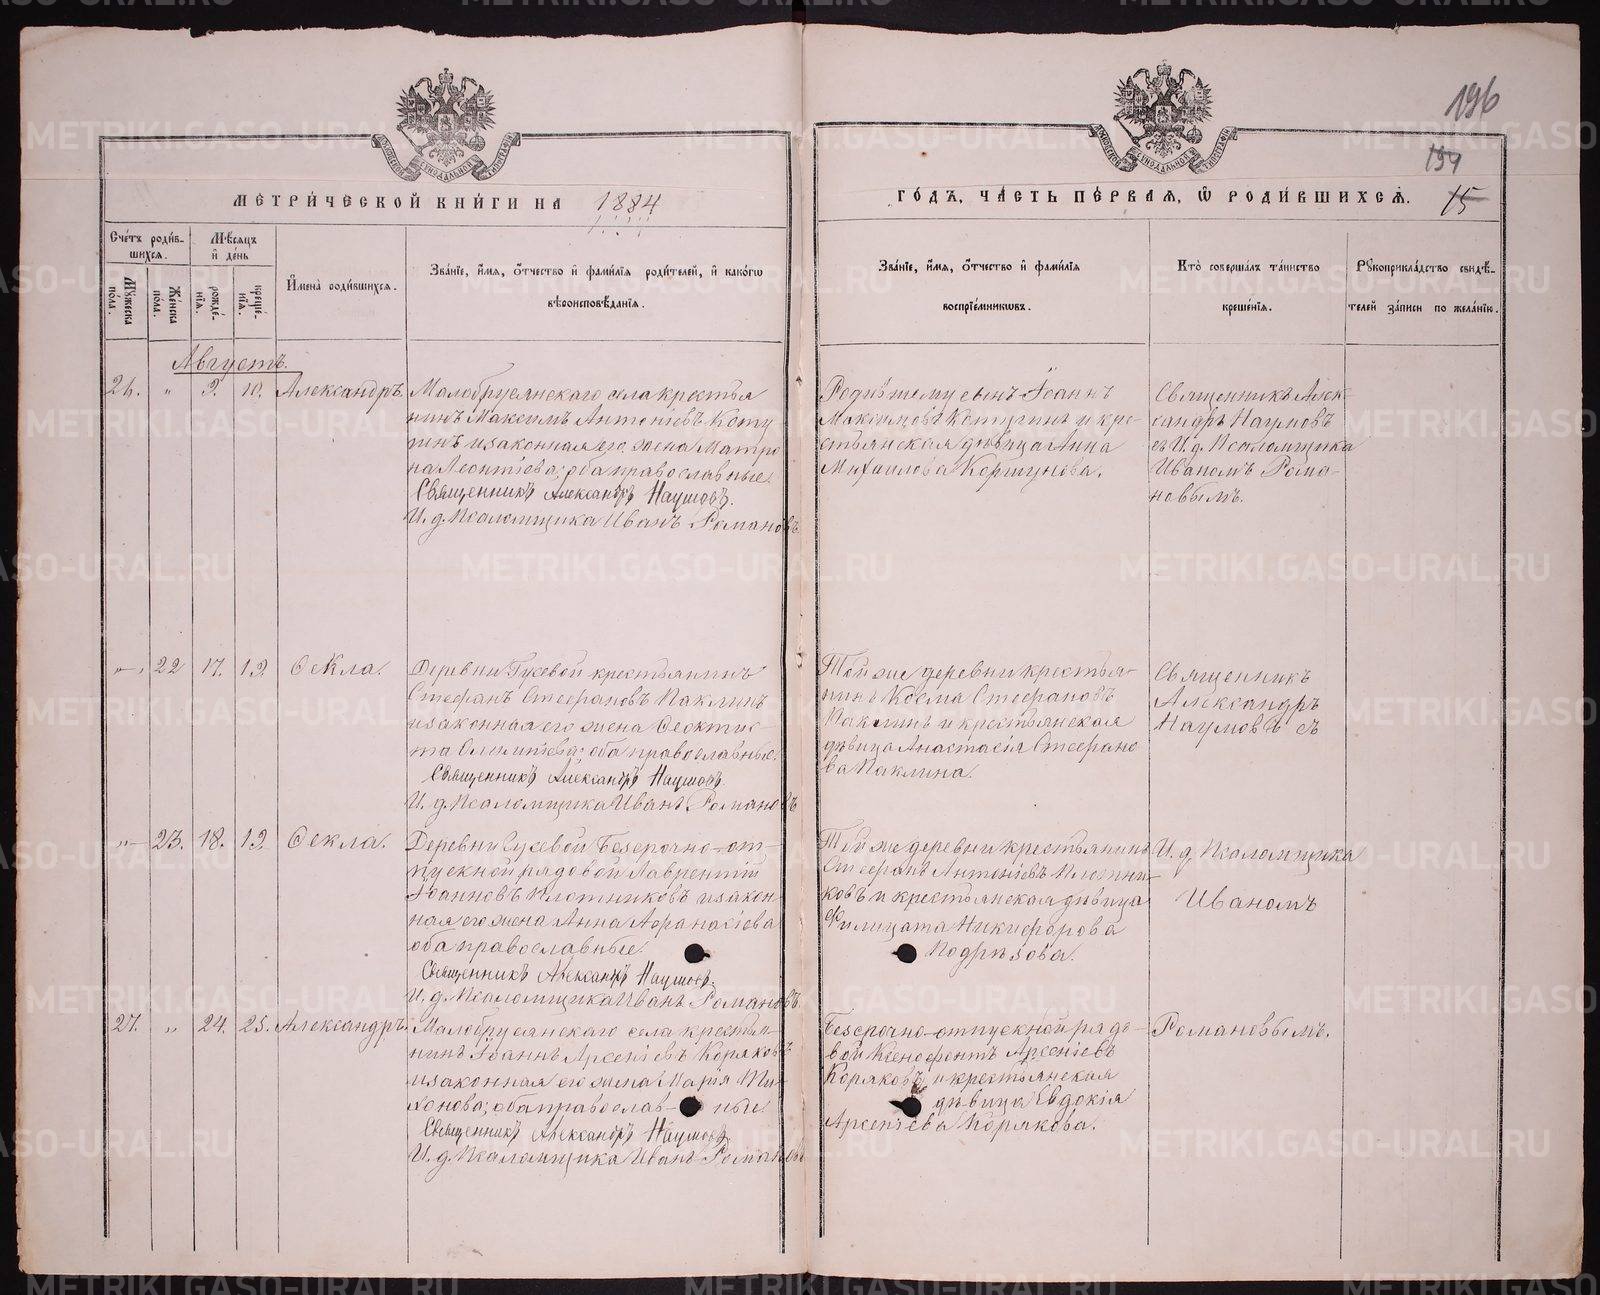 196
194
15
МЕТРИ́ЧЕСКОЙ КНИ́ГИ НА 1884
ГО́ДЪ, ЧА́СТЬ ПЕ́РВАЯ, Ѡ РОДИ́ВШИХСЯ.
Сче́тъ роди́в-
шихся.
Мѣ́сяцъ
и де́нь
Му́жеска по́ла.
Же́нска по́ла.
рожде́-
нїя.
креще́-
нїя.
И҆мена̀ роди́вшихся.
Зва́нїе, и҆́мя, ѻ҆́тчество и҆ фами́лїя роди́телей, и҆ како́гѡ
вѣроисповѣ́данїя.
Зва́нїе, и҆́мя, ѻ҆́тчество и҆ фами́лїя
воспрїе́мникѡвъ.
Кто̀ соверша́лъ та́инство
креще́нїя.
Рꙋкоприкла́дство свидѣ́-
телей за́писи по жела́нїю.
Августъ.
26. " 9. 10. Александръ.
Малобрусянскаго села крестья
нинъ Максимъ Антонiевъ Кочу
гинъ и законная его жена Матро
на Леонтiева; оба православные.
Священникъ Александръ Наумовъ.
И. д. Псаломщика Иванъ Романовъ.
Родившему сынъ Iоаннъ
Максимовъ Кочугинъ и кре-
стьянская дѣвица Анна
Михаилова Коршунова.
Священникъ Алек-
сандръ Наумовъ
съ И. д. Псаломщика
Иваномъ Рома-
новымъ.
" 22 17. 19. Ѳекла.
Деревни Гусевой крестьянинъ
Стефанъ Стефановъ Паклинъ
и законная его жена Ѳеоктис-
та оба православные.
Священникъ Александръ Наумовъ
И. д. Псаломщика Иванъ Романовъ
Той же деревни крестья-
нинъ Косма Стефановъ
Паклинъ и крестьянская
дѣвица Анастасiя Стефано
ва Паклина.
Священникъ
Александръ
Наумовъ съ
" 23. 18. 19. Ѳекла.
Деревни Гусевой Безсрочно-от-
пускной рядовой Лаврентiй
Iоанновъ Плотниковъ и закон-
ная его жена Анна Аѳанасiева
оба православные.
Священникъ Александръ Наумовъ.
И. д. Псаломщика Иванъ Романовъ.
Той же деревни крестьянинъ
Стефанъ Антонiевъ Плотни-
ковъ и крестьянская дѣвица
Филицата Никифорова
Подрѣзова.
И. д. Псаломщика
Иваномъ
27. " 24. 25. Александръ.
Малобрусянскаго села крестья-
нинъ Iоаннъ Арсенiевъ Коряковъ
и законная его жена Марiя Ти-
хонова; оба православ- ные.
Священникъ Александръ Наумовъ
И. д. Псаломщика Иванъ Романовъ
Безсрочно-отпускной рядо-
вой Ксенофонтъ Арсенiевъ
Коряковъ и крестьянская
дѣвица Евдокiя
Арсенiева Корякова.
Романовымъ.